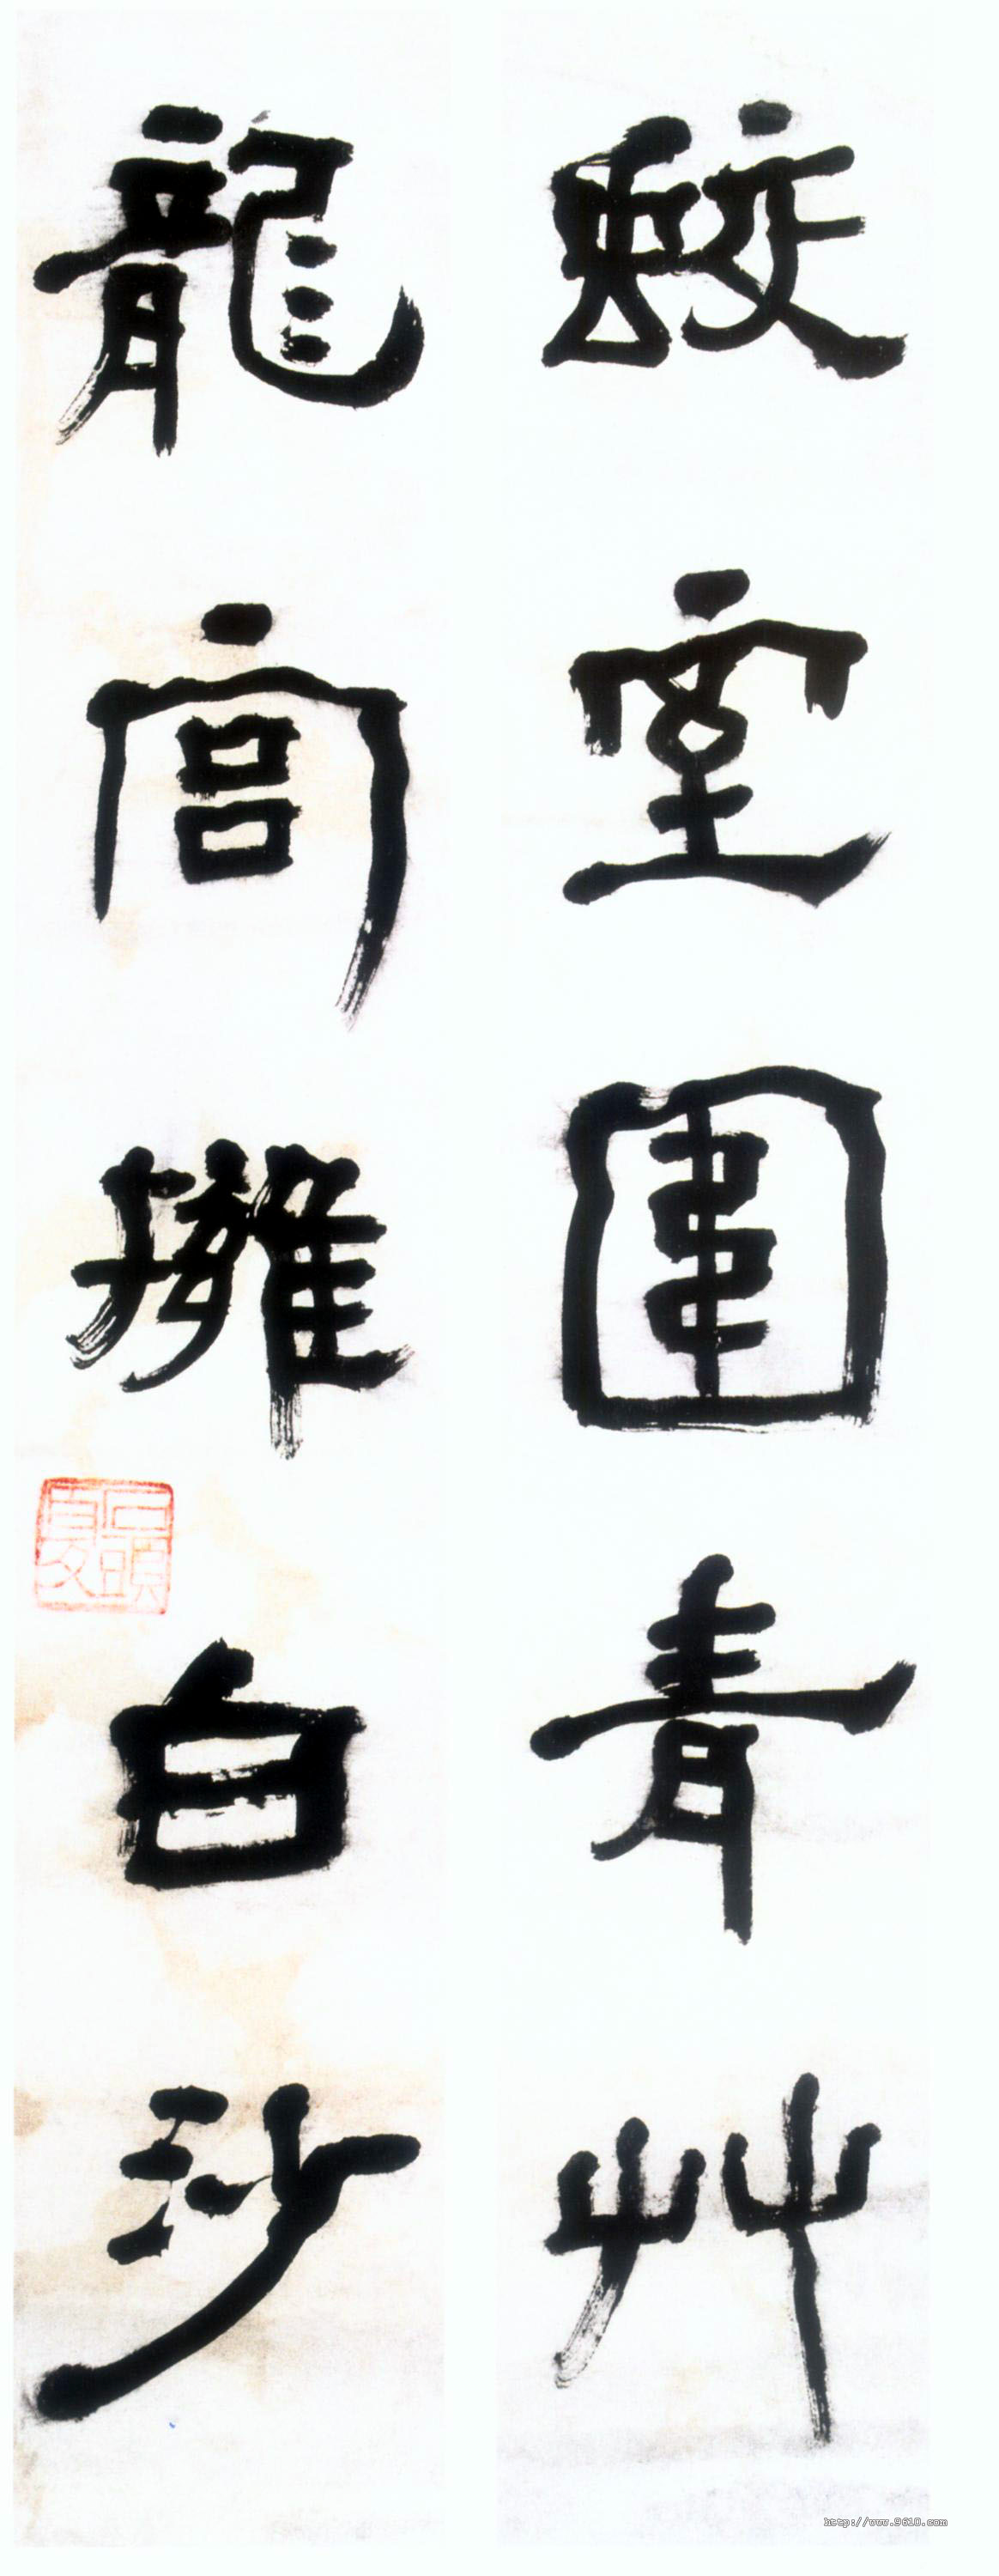 蛟室圍青艸
龍宮擁白沙
http://www.9610.com